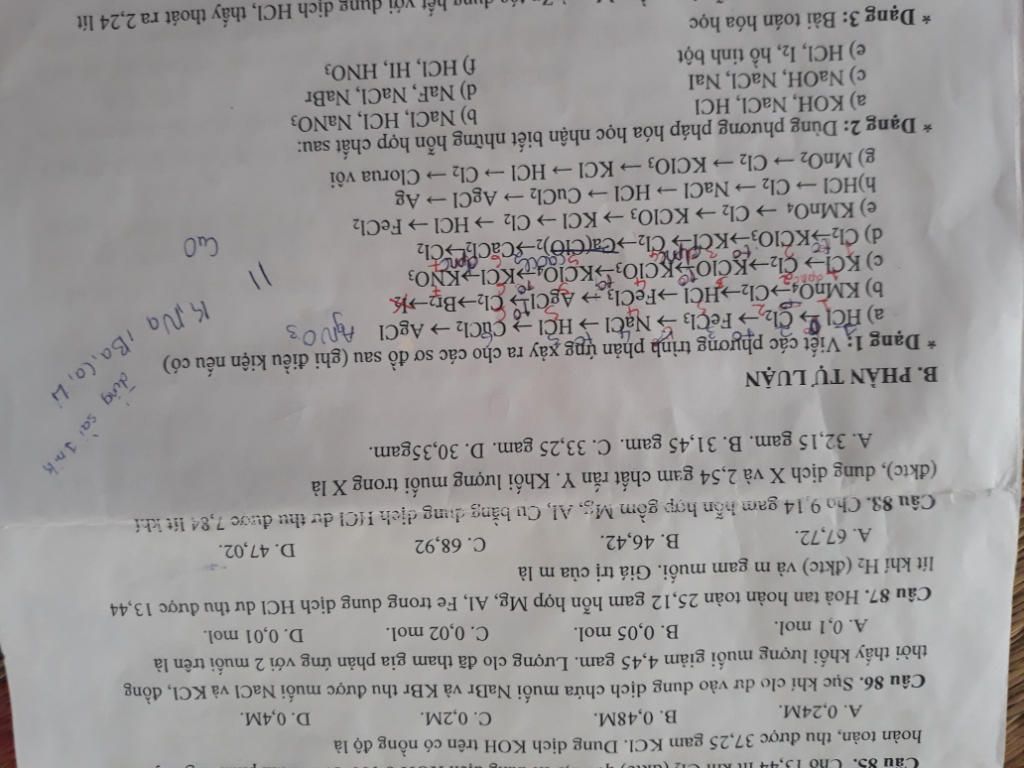 Câu 85. Cho 13,44 lít khí Cl₂ (đktc)
hoàn toàn, thu được 37,25 gam KCl. Dung dịch KOH trên có nồng độ là
A. 0,24M. B. 0,48M. C. 0,2M. D. 0,4M.
Câu 86. Sục khí clo dư vào dung dịch chứa muối NaBr và KBr thu được muối NaCl và KCl, đồng
thời thấy khối lượng muối giảm 4,45 gam. Lượng clo đã tham gia phản ứng với 2 muối trên là
A. 0,1 mol. B. 0,05 mol. C. 0,02 mol. D. 0,01 mol.
Câu 87. Hoà tan hoàn toàn 25,12 gam hỗn hợp Mg, Al, Fe trong dung dịch HCl dư thu được 13,44
lít khí H₂ (đktc) và m gam muối. Giá trị của m là
A. 67,72. B. 46,42. C. 68,92 D. 47,02.
Câu 88. Cho 9,14 gam hỗn hợp gồm Mg, Al, Cu bằng dung dịch HCl dư thu được 7,84 lít khí
(đktc), dung dịch X và 2,54 gam chất rắn Y. Khối lượng muối trong X là
A. 32,15 gam. B. 31,45 gam. C. 33,25 gam. D. 30,35gam.
B. PHẦN TỰ LUẬN
* Dạng 1: Viết các phương trình phản ứng xảy ra cho các sơ đồ sau (ghi điều kiện nếu có)
a) HCl → Cl₂ → FeCl₃ → NaCl → HCl → CuCl₂ → AgCl
b) KMnO₄→Cl₂→HCl→FeCl₃→ AgCl→ Cl₂→Br₂→I₂
c) KCl→ Cl₂→KClO→KClO₃→KClO₄→KCl→KNO₃
d) Cl₂→KClO₃→KCl→ Cl₂→Ca(ClO)₂→CaCl₂→Cl₂
e) KMnO₄ → Cl₂ → KClO₃ → KCl → Cl₂ → HCl → FeCl₂
h)HCl → Cl₂ → NaCl → HCl → CuCl₂ → AgCl → Ag
g) MnO₂ → Cl₂ → KClO₃ → KCl → HCl → Cl₂ → Clorua vôi
* Dạng 2: Dùng phương pháp hóa học nhận biết những hỗn hợp chất sau:
a) KOH, NaCl, HCl b) NaCl, HCl, NaNO₃
c) NaOH, NaCl, NaI d) NaF, NaCl, NaBr
e) HCl, I₂, hồ tinh bột f) HCl, HI, HNO₃
* Dạng 3: Bài toán hóa học
tác dụng hết với dung dịch HCl, thấy thoát ra 2,24 lít
AgNO₃
K, Na, Ba, Ca, Li
CuO